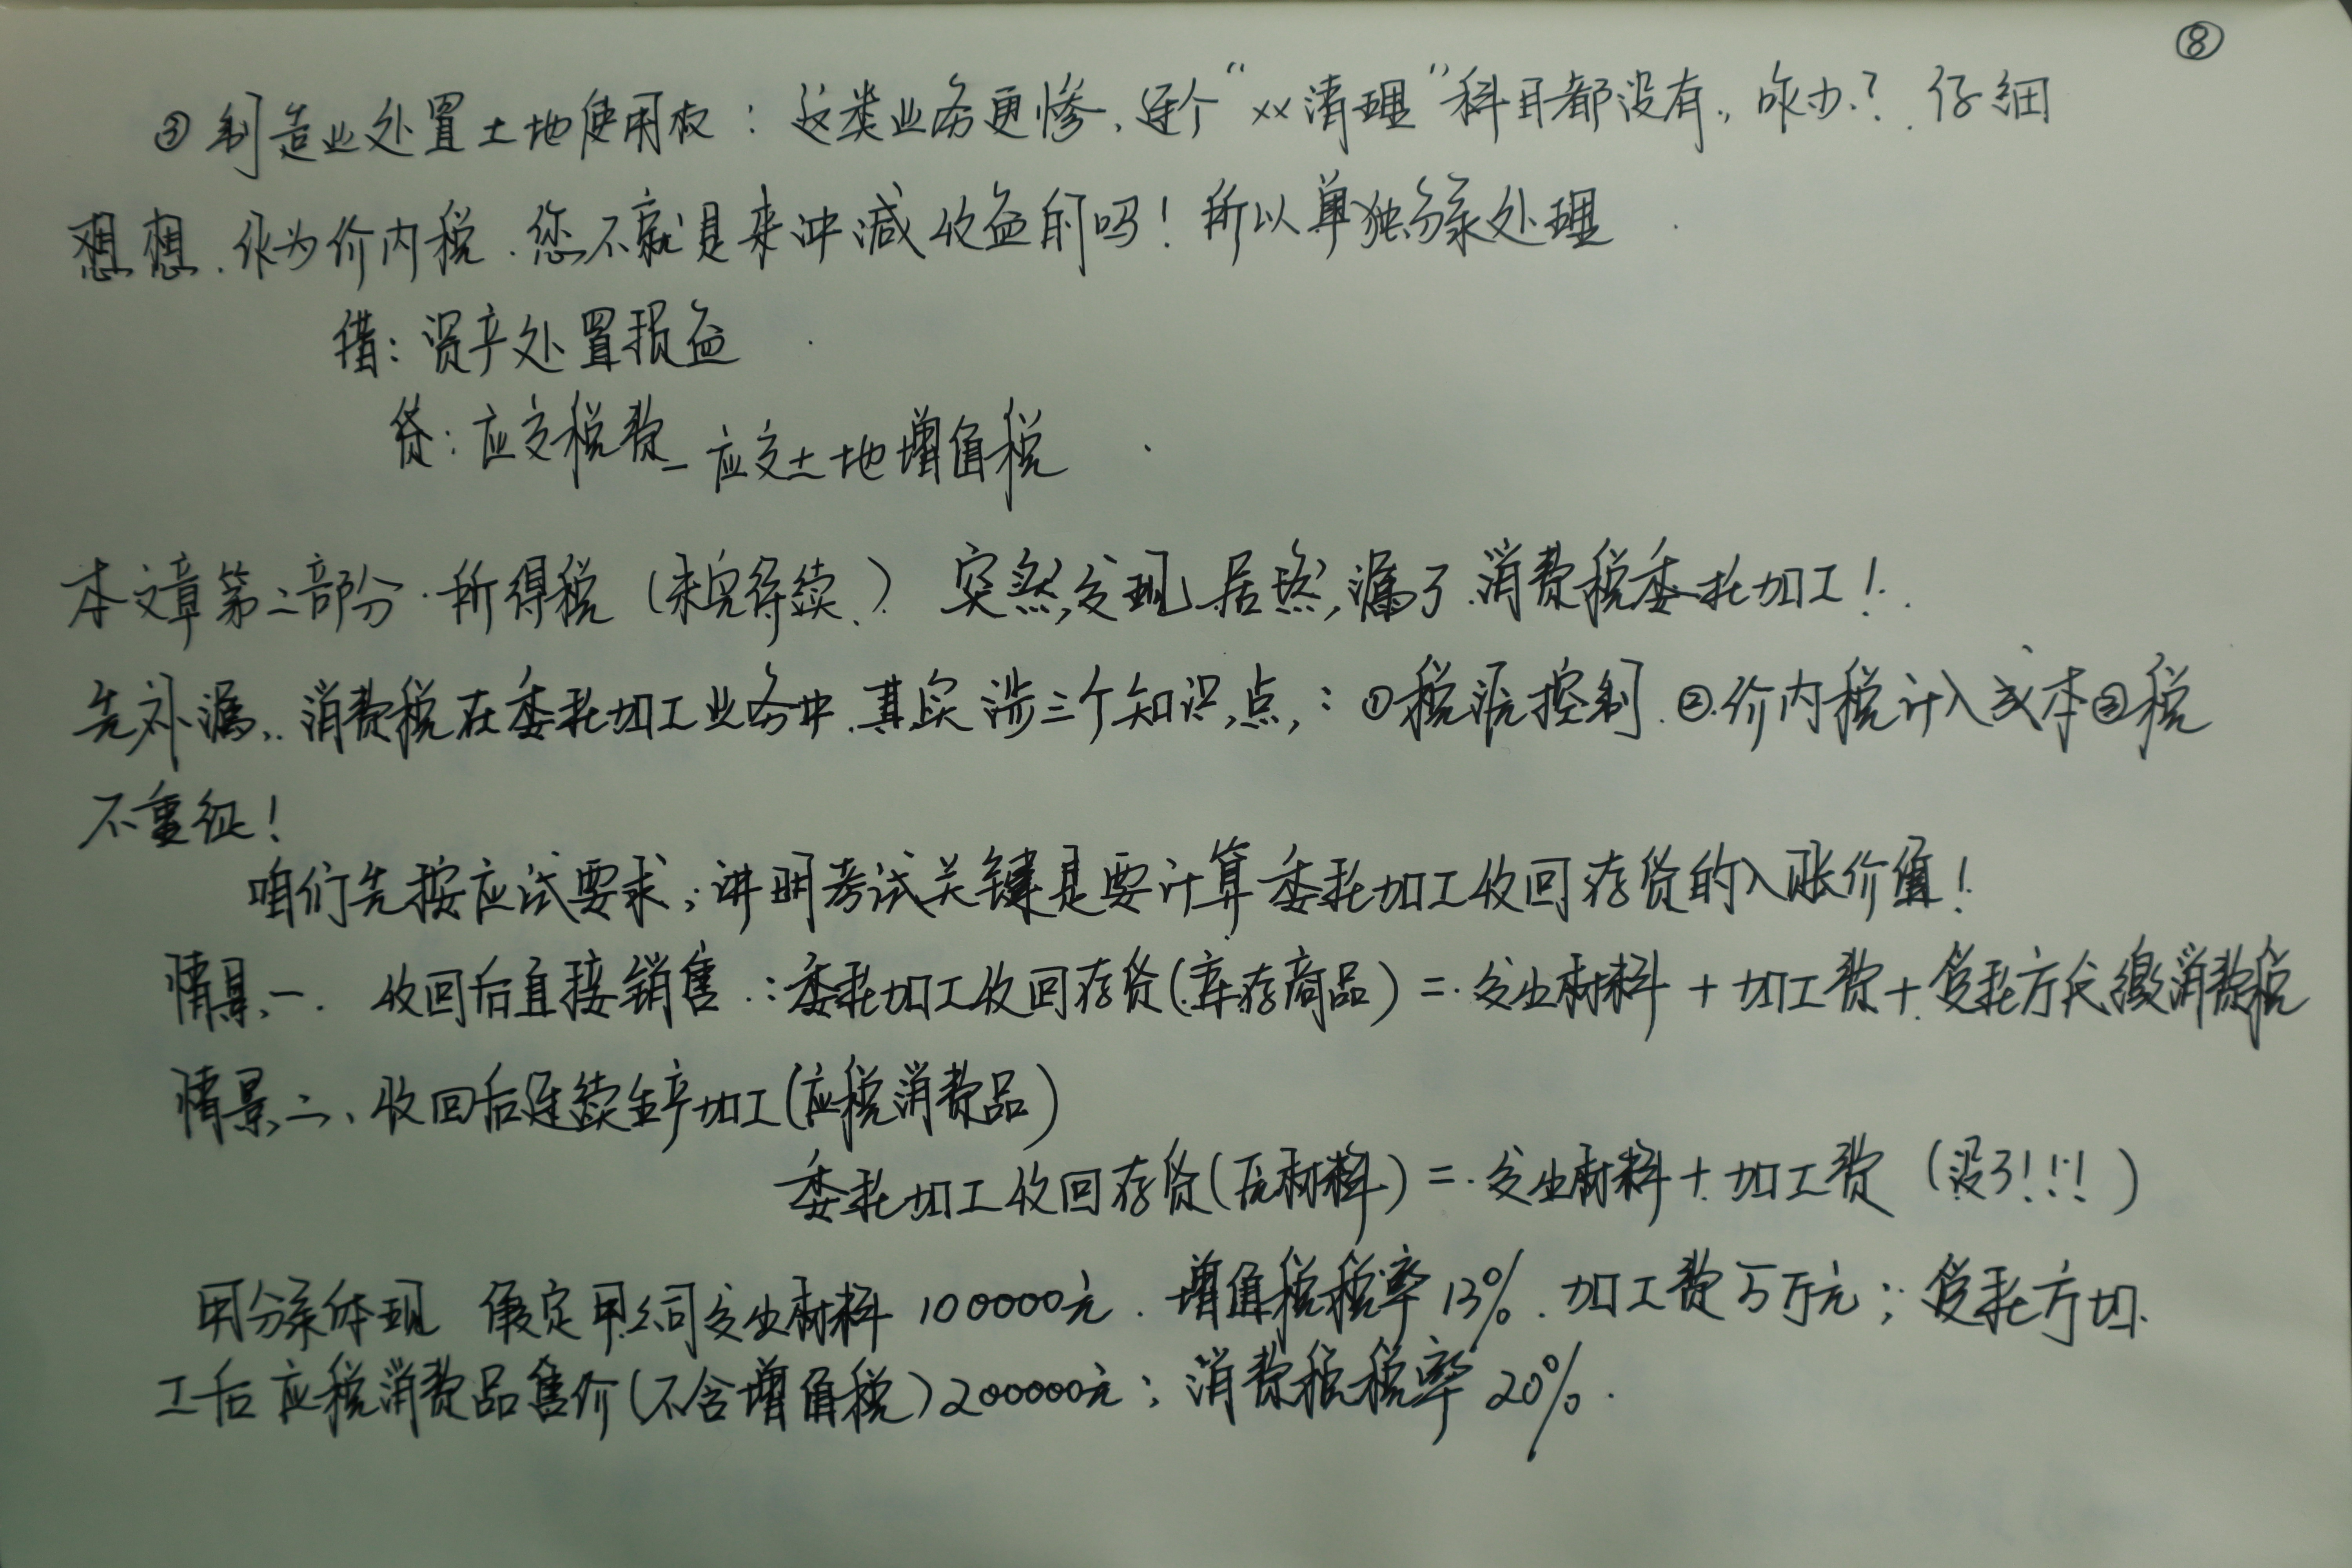 ⑧
③制造业处置土地使用权：这类业务更惨，连个“××清理”科目都没有，咋办？仔细
想想，作为价内税，您不就是来冲减收益的吗！所以单独分录处理
借：资产处置损益
贷：应交税费－应交土地增值税
本文章第二部分·所得税（未完待续）突然发现居然漏了消费税委托加工！
先补漏、消费税在委托加工业务中，其实涉三个知识点：①税源控制②价内税计入成本③税
不重征！
咱们先按应试要求；讲明考试关键是要计算委托加工收回存货的入账价值！
情景一. 收回后直接销售：委托加工收回存货（库存商品）=发出材料+加工费+受托方代缴消费税
情景二、收回后连续生产加工（应税消费品）
委托加工收回存货（原材料）=发出材料+加工费（没了!!!）
用分录体现 假定甲公司发出材料100000元．增值税税率13%．加工费5万元；受托方加
工后应税消费品售价（不含增值税）200000元；消费税税率20%．